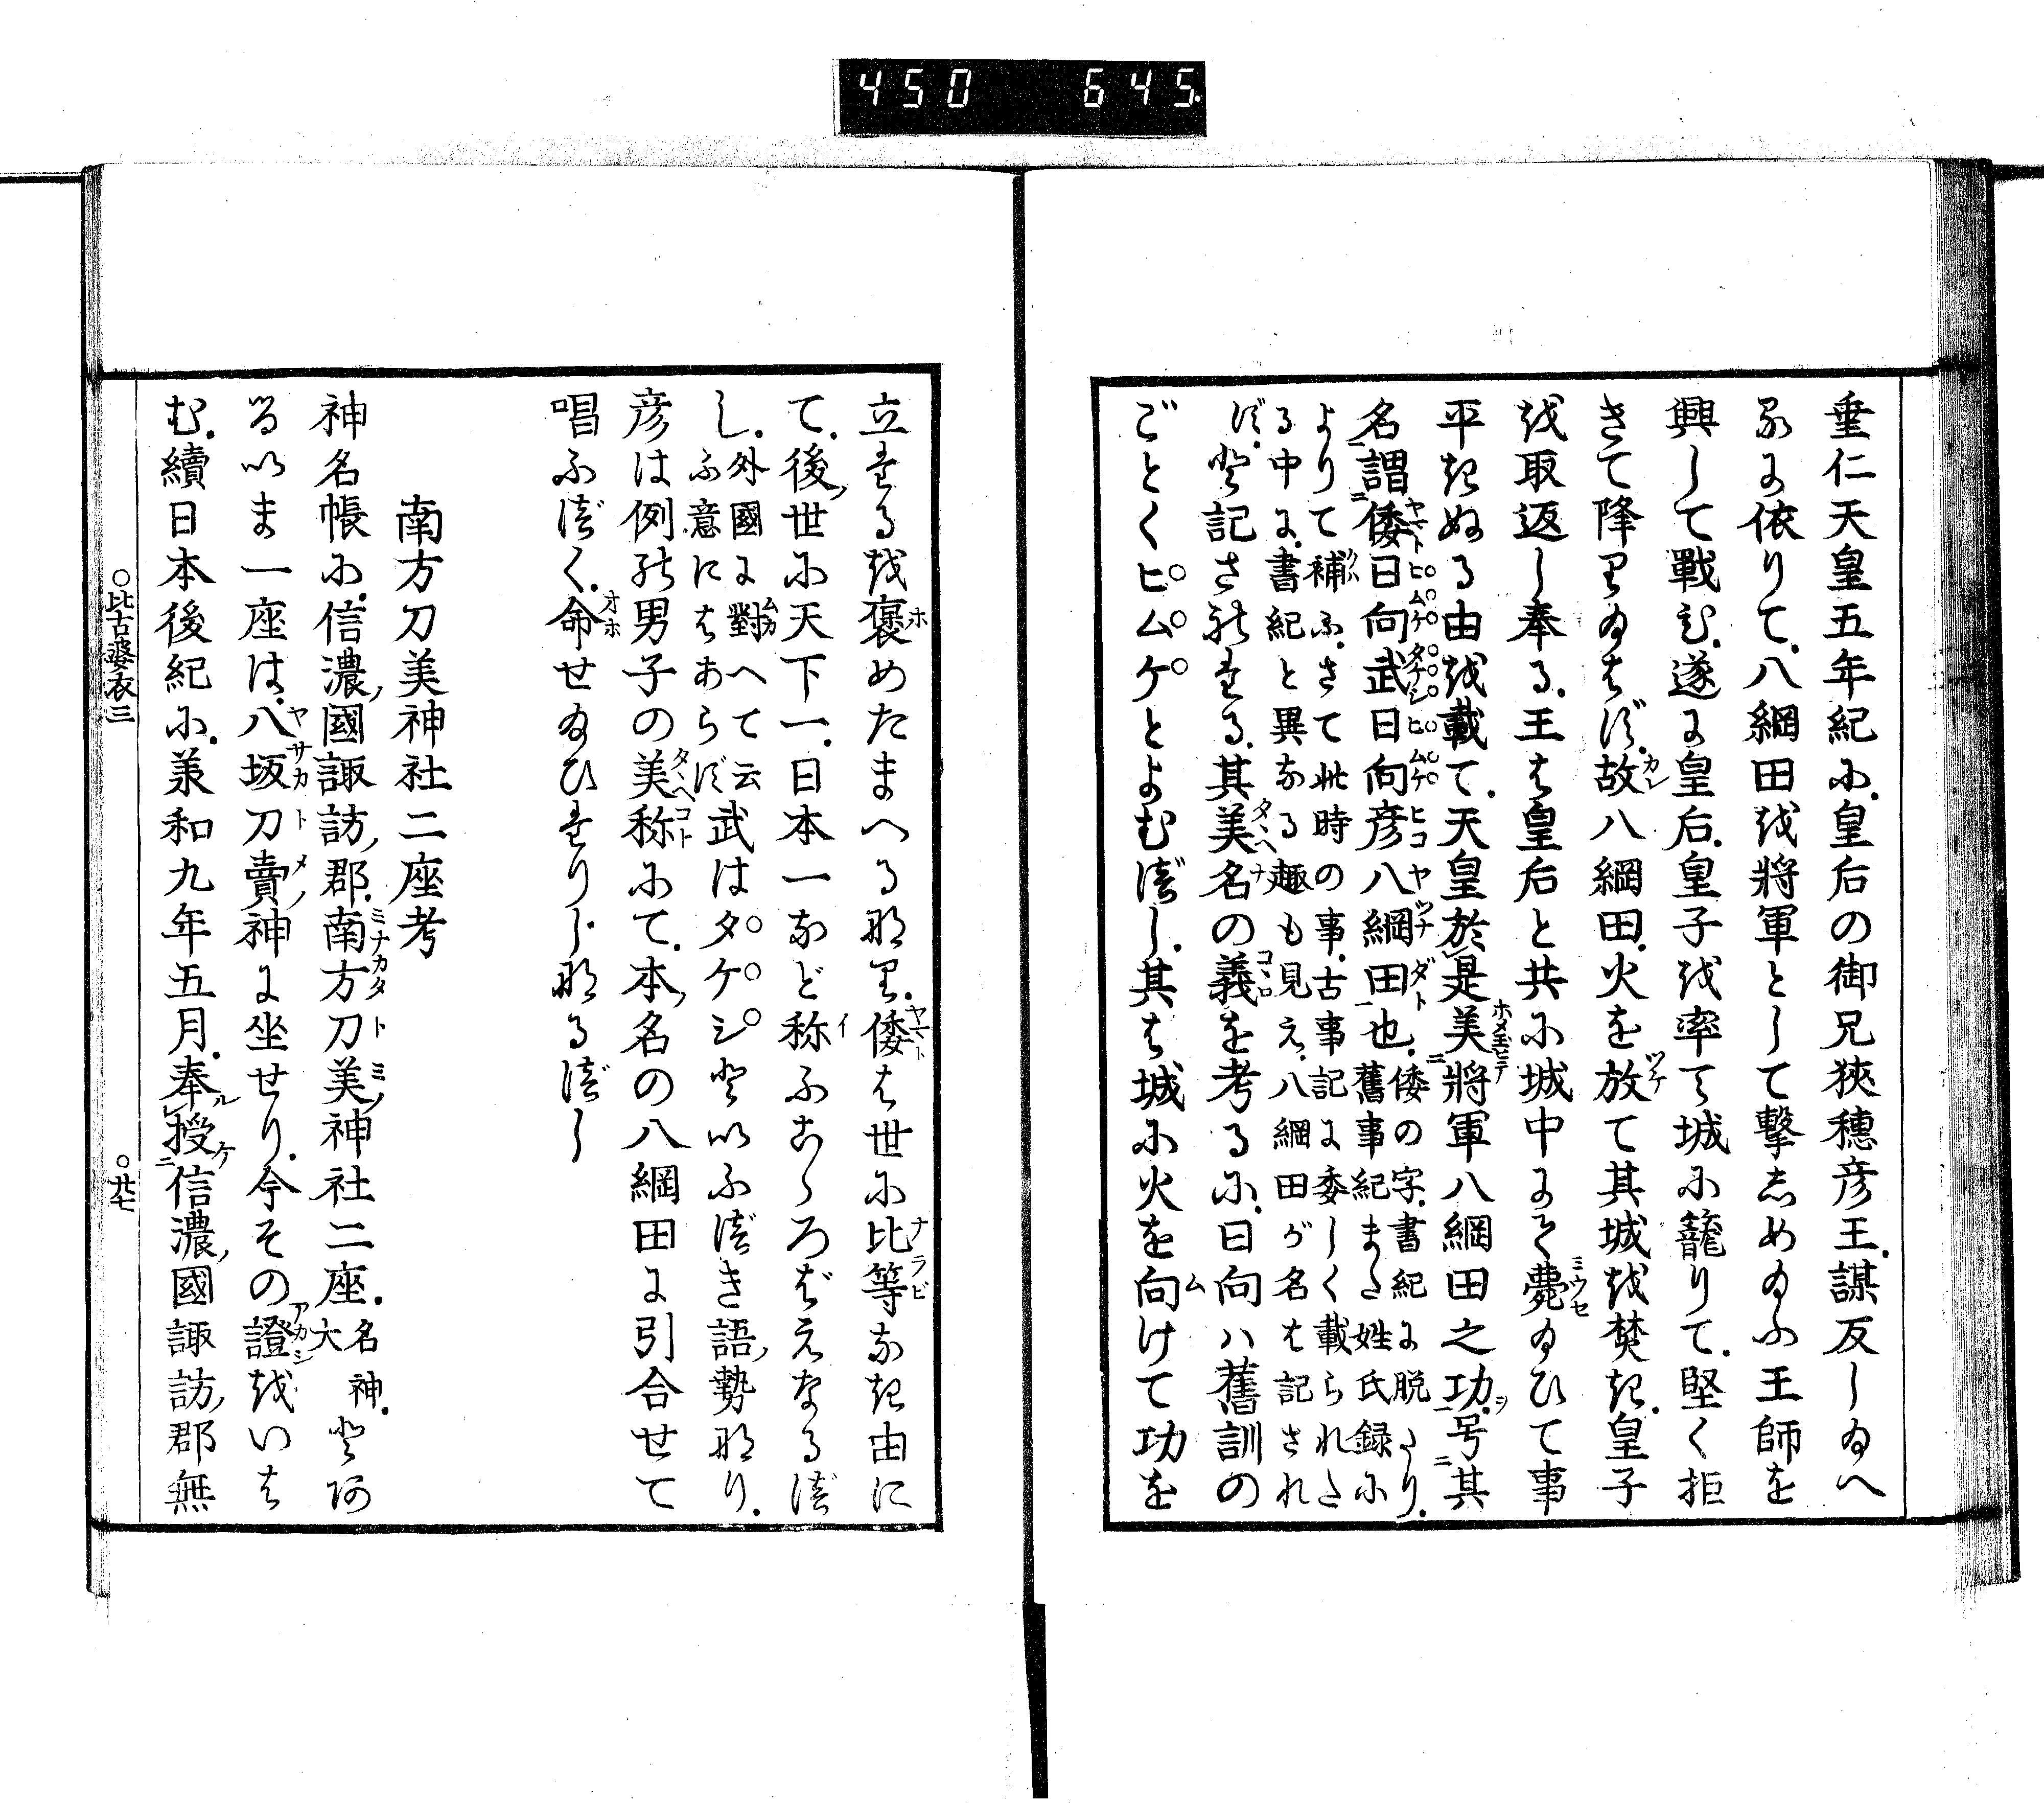 450 645
垂仁天皇五年紀に、皇后の御兄狹穗彦王、謀反し給へ
るに依りて、八綱田を將軍として擊しめ給ふ王師を
興して戰ひ、遂に皇后、皇子を率て城に籠りて、堅く拒
きて降り給はず、故八綱田、火を放て其城を焚き、皇子
を取返し奉る、王は皇后と共に城中にて薨給ひて事
平ぎぬる由を載て、天皇於是美將軍八綱田之功、号其
名謂倭日向武日向彦八綱田也、倭の字、書紀に脱たり、
舊事紀また姓氏録に
よりて補ふ、さて此時の事、古事記に委しく載られた
る中に、書紀と異なる趣も見え、八綱田が名は記され
ず、と記されたる、其美名の義を考るに、日向ハ舊訓の
ごとくヒムケとよむべし、其は城に火を向けて功を
立たるを褒めたまへる那り、倭は世に比等なき由に
て、後世に天下一、日本一など称ふこゝろばえなるべ
し、外國に對へて云
ふ意にはあらず、武はタケシといふべき語勢那り、
彦は例の男子の美称にて、本名の八綱田に引合せて
唱ふべく、命せ給ひたりし那るべし
南方刀美神社二座考
神名帳に、信濃國諏訪郡、南方刀美神社二座、名神大、と阿
るいま一座は、八坂刀賣神に坐せり、今その證をいは
む、續日本後紀に、兼和九年五月、奉授信濃國諏訪郡無
○比古婆衣三
○廿七